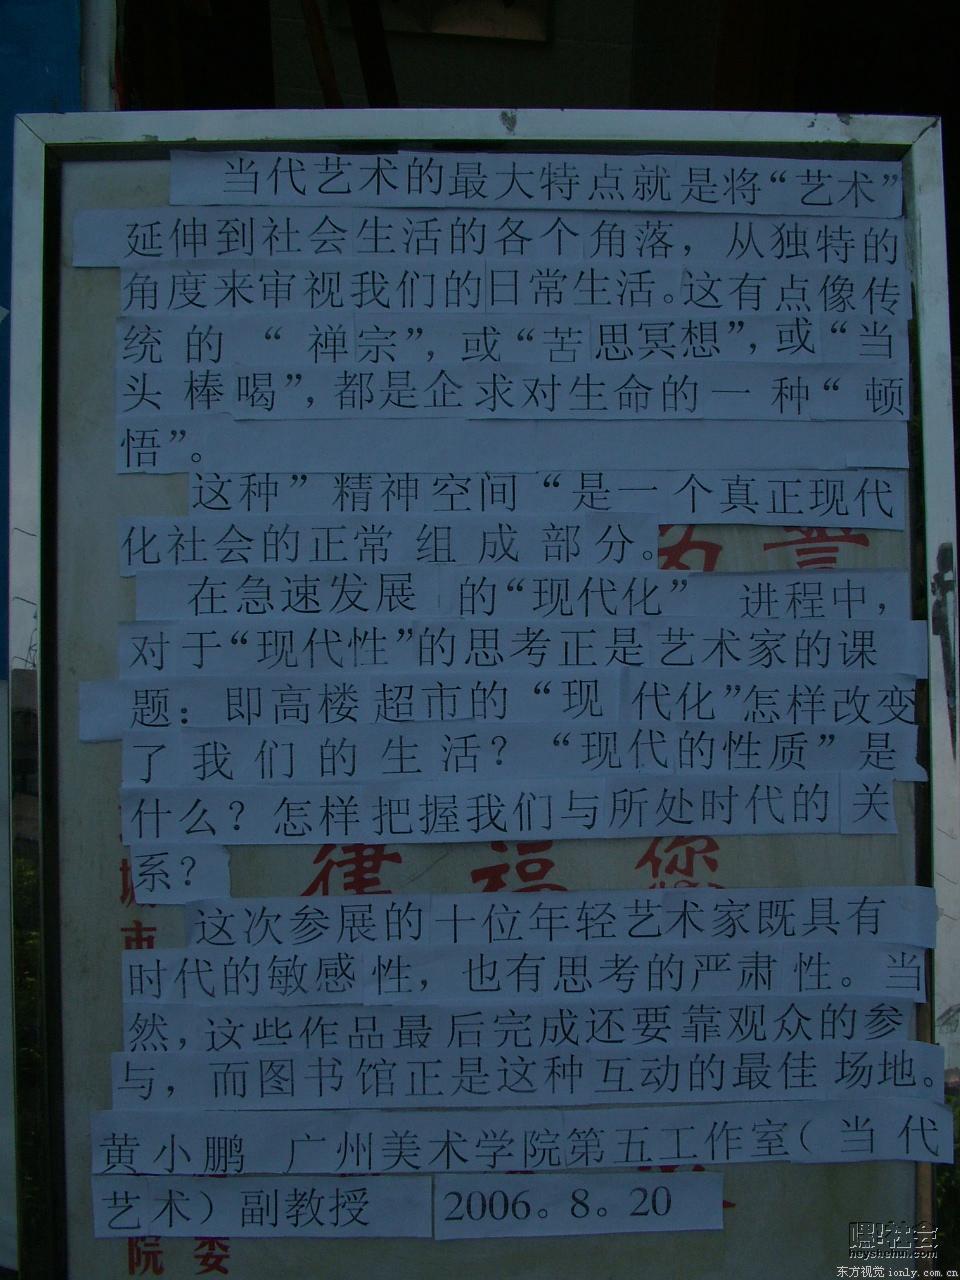 当代艺术的最大特点就是将“艺术”
延伸到社会生活的各个角落，从独特的
角度来审视我们的日常生活。这有点像传
统的“禅宗”，或“苦思冥想”，或“当
头棒喝”，都是企求对生命的一种“顿
悟”。
这种”精神空间“是一个真正现代
化社会的正常组成部分。
在急速发展的“现代化”进程中，
对于“现代性”的思考正是艺术家的课
题：即高楼超市的“现代化”怎样改变
了我们的生活？“现代的性质”是
什么？怎样把握我们与所处时代的关
系？
这次参展的十位年轻艺术家既具有
时代的敏感性，也有思考的严肃性。当
然，这些作品最后完成还要靠观众的参
与，而图书馆正是这种互动的最佳场地。
黄小鹏 广州美术学院第五工作室（当代
艺术）副教授 2006。8。20
律福您
城市
院委
嘿!社会
heyshehui.com
东方视觉 ionly.com.cn